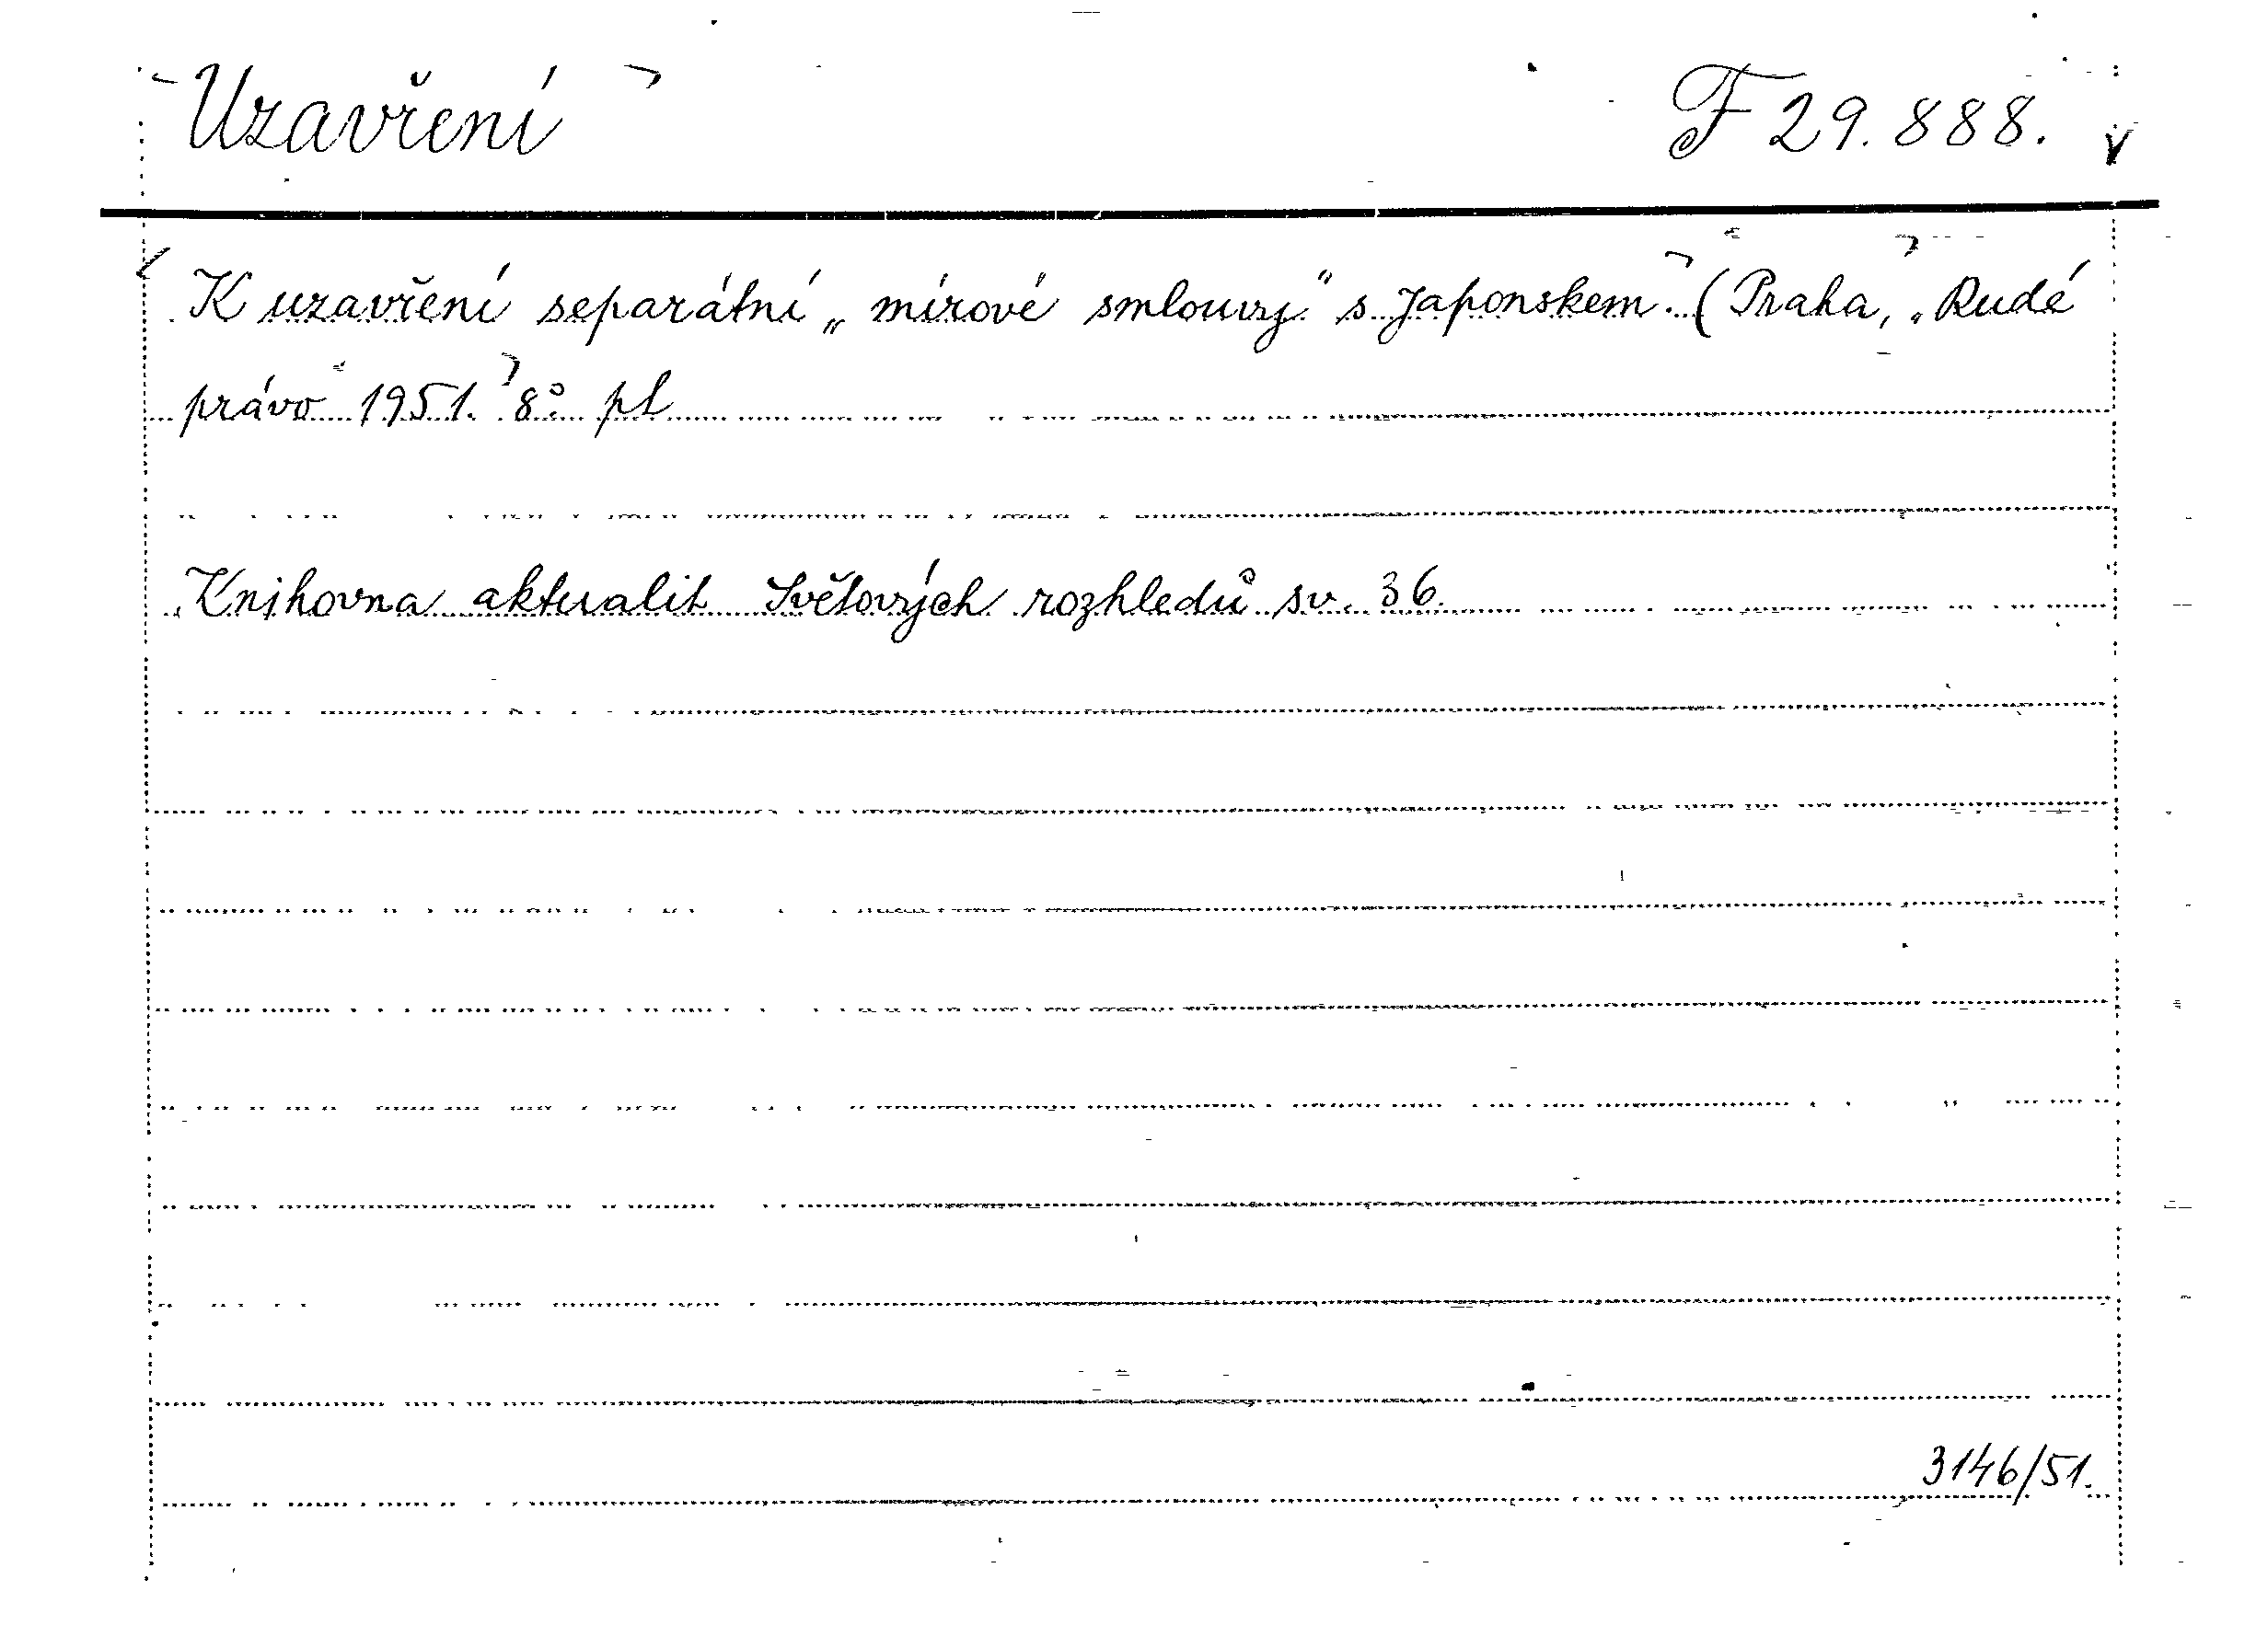 Uzavření F 29.888.
K uzavření separátní „mírové smlouvy" s Japonskem. (Praha, „Rudé
právo" 1951. 8° pl
Knihovna aktualit Světových rozhledů sv. 36.
3146/51.